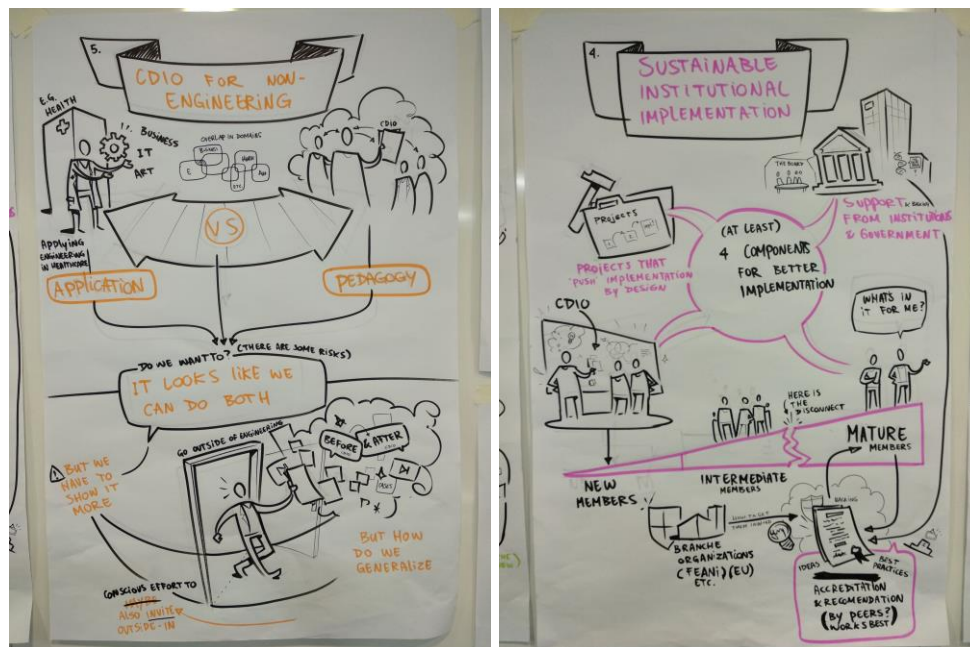 5.
CDIO FOR NON-
ENGINEERING
E.G.
HEALTH
BUSINESS
IT
ART
OVERLAP IN DOMAINS
CDIO
VS
APPLYING
ENGINEERING
IN HEALTHCARE
APPLICATION
PEDAGOGY
DO WE WANT TO? (THERE ARE SOME RISKS)
IT LOOKS LIKE WE
CAN DO BOTH
GO OUTSIDE OF ENGINEERING
BEFORE & AFTER
BUT WE
HAVE TO
SHOW IT
MORE
BUT HOW
DO WE
GENERALIZE
CONSCIOUS EFFORT TO
ALSO INVITE
OUTSIDE-IN
4.
SUSTAINABLE
INSTITUTIONAL
IMPLEMENTATION
THE BOARD
PROJECTS
SUPPORT
FROM INSTITUTIONS
& GOVERNMENT
PROJECTS THAT
'PUSH' IMPLEMENTATION
BY DESIGN
(AT LEAST)
4 COMPONENTS
FOR BETTER
IMPLEMENTATION
WHATS IN
IT FOR ME?
CDIO
HERE IS
THE
DISCONNECT
MATURE
MEMBERS
NEW
MEMBERS
INTERMEDIATE
MEMBERS
HOW TO GET
THEM INVOLVED
BRANCHE
ORGANIZATIONS
(FEANI) (EU)
ETC.
IDEAS
BEST
PRACTICES
ACCREDITATION
& RECOMENDATION
(BY PEERS?)
WORKS BEST